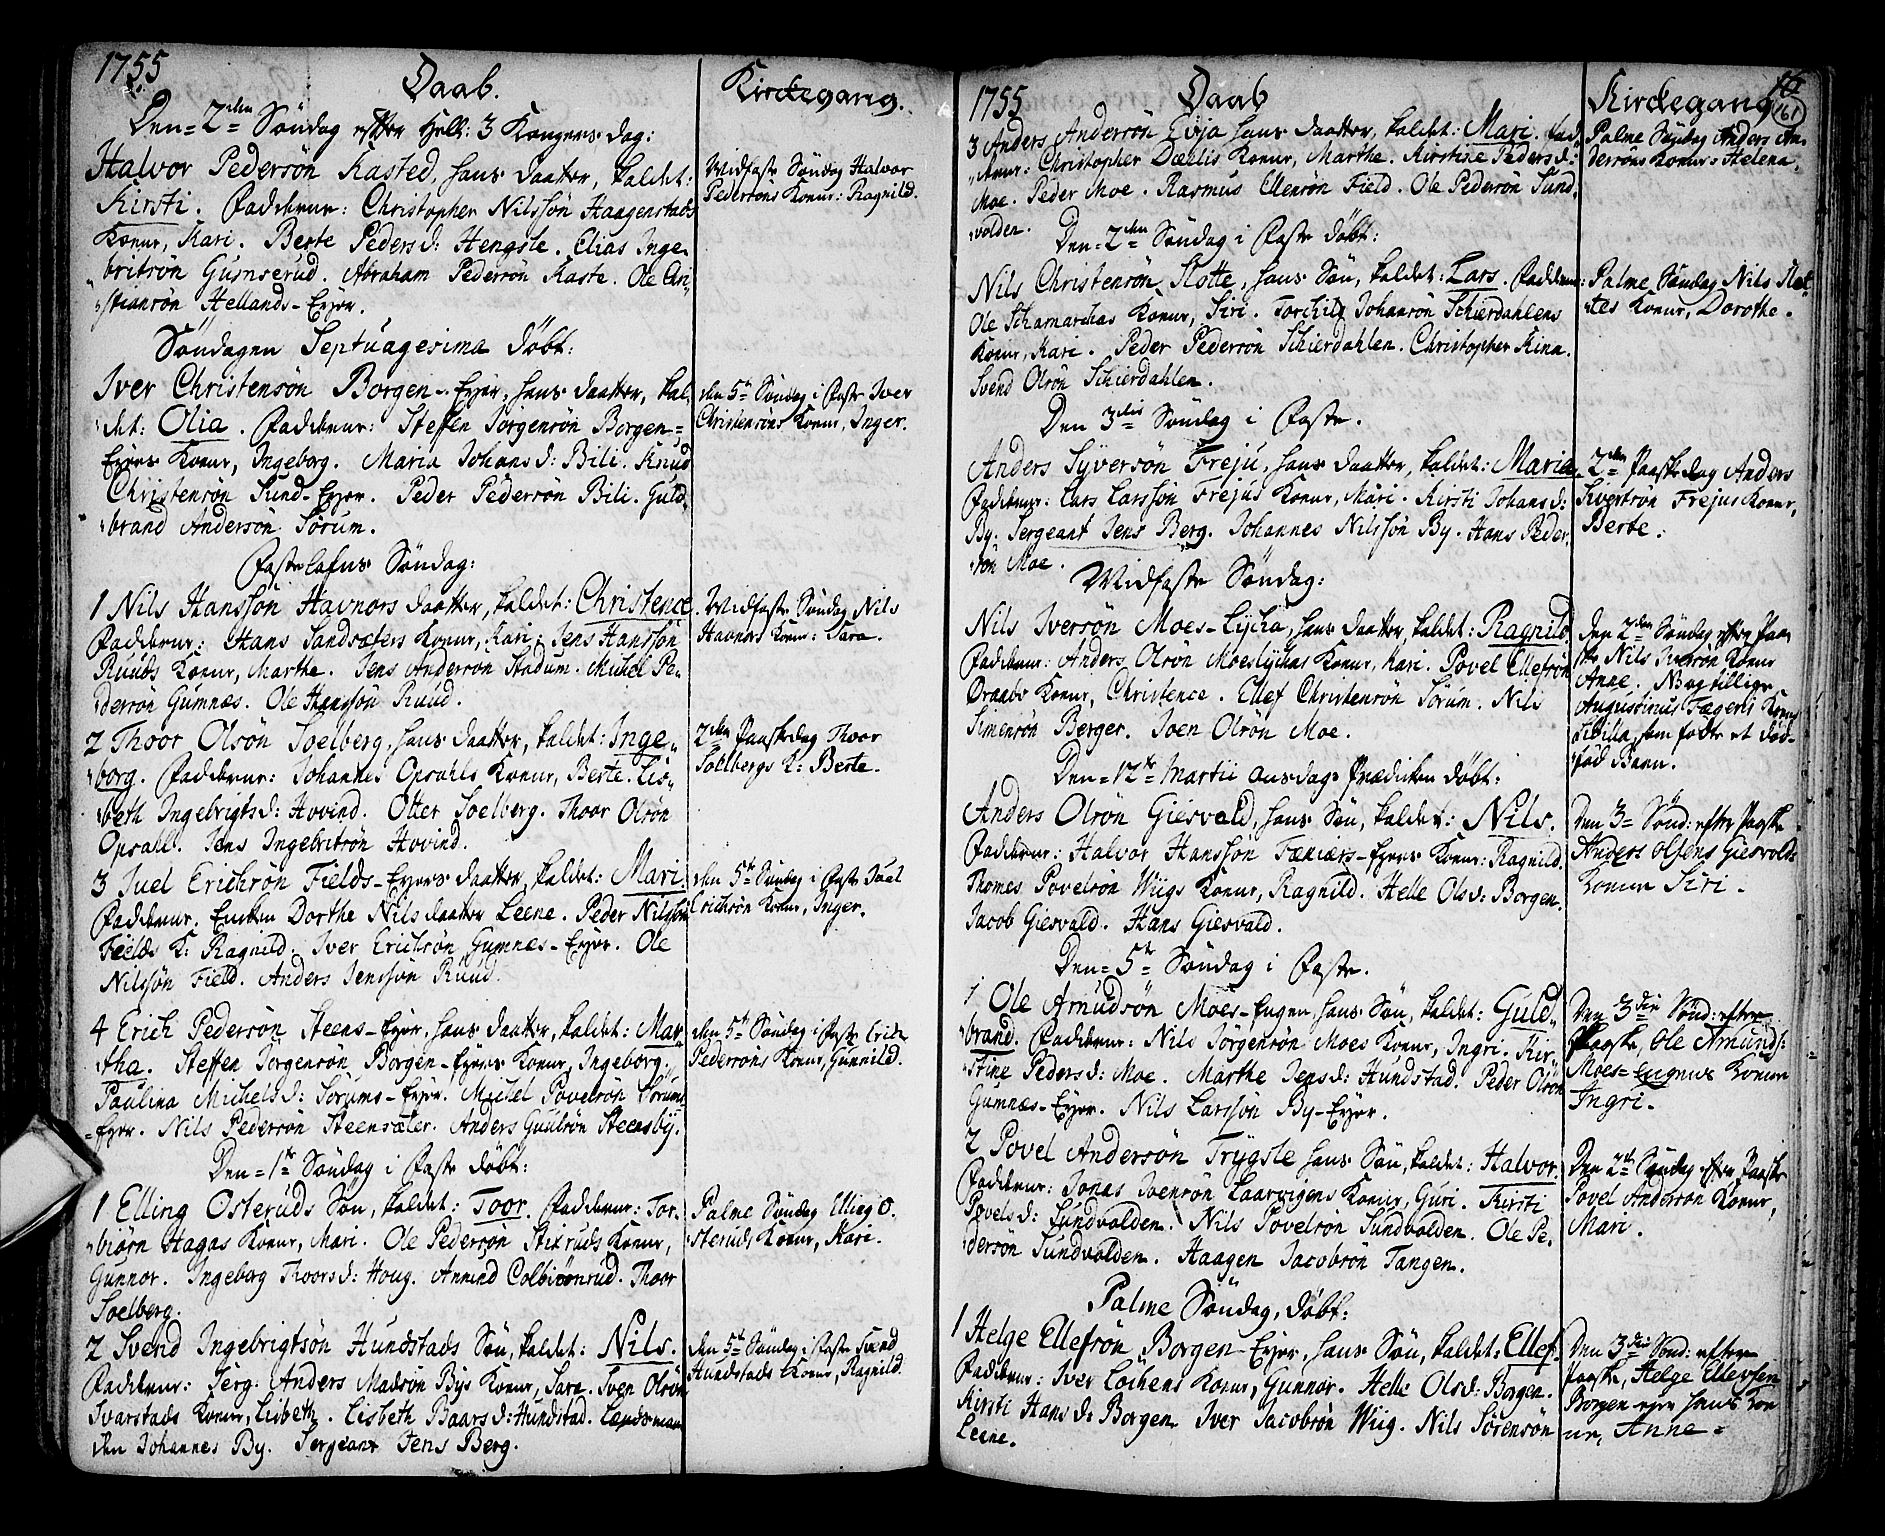 1755
Daab.
Kirckegang.
Den 2den Søndag efter Hell: 3 Kongers dag:
Halvor Pedersøn Kasted, hans daatter, kaldet:
Kirsti. Fadderne: Christopher Nilssøn Haagenstads
Kone, Kari. Berte Peders d: Hengsle. Elias Inge-
britsøn Gumserud. Abraham Pedersøn Kaste. Ole Cri-
stiansøn Hellands-Eyer.
Midfaste Søndag Halvor
Pedersøns Kone: Ragnild.
Søndagen Septuagesima døbt:
Iver Christensøn Borgen-Eyer, hans daatter, kal-
det: Olia. Fadderne: Steffen Jørgensøn Borgen-
Eyers Kone, Ingeborg. Maria Johans d: Bili. Knud
Christensøn Sund-Eyer. Peder Pedersøn Bili. Guld-
brand Andersøn Sørum.
den 5te Søndag i Faste Iver
Christensøns Kone, Inger.
Fastelafns Søndag:
1 Nils Hanssøn Havnors daatter, kaldet: Christence.
Fadderne: Hans Sandsæters Kone, Kari. Jens Hanssøn
Ruuds Kone, Marthe. Jens Andersøn Stadum. Michel Pe-
dersøn Gumnes. Ole Hanssøn Ruud.
Midfaste Søndag Nils
Havnors Kone: Sara.
2 Thoor Olsøn Soelberg, hans daatter, kaldet: Inge-
borg. Fadderne: Johannes Opsahls Kone, Berte. Lis-
beth Ingebrigts d: Hovind. Otter Soelberg. Thoor Olsøn
Opsall. Jens Ingebritsøn Hovind.
2den Paaskedag Thoor
Solbergs K: Berte.
3 Juel Erichsøn Fields-Eyers daatter, kaldet: Mari.
Fadderne. Encken Dorthe Nils daatter Leene. Peder Nilssøn
Fields K: Ragnild. Iver Erichsøn Gumnes-Eyer. Ole
Nilssøn Field. Anders Jenssøn Ruud.
den 5te Søndag i Faste Juel
Erichsøn Kone, Inger.
4 Erich Pedersøn Steens-Eyer, hans daatter, kaldet: Mar-
tha. Steffen Jørgensøn Borgen-Eyers Kone, Ingeborg.
Paulina Michels d: Sørums-Eyer. Michel Povelsøn Sørums
-Eyer. Nils Pedersøn Steensæter. Anders Guulsøn Steensby.
den 5te Søndag i Faste Erich
Pedersøns Kone, Gunnild.
Den 1te Søndag i Faste døbt:
1 Elling Osteruds Søn, kaldet: Toor. Fadderne: Tor-
biørn Hagas Kone, Mari. Ole Pedersøn Stixruds Kone,
Gunnor. Ingeborg Thoors d: Houg. Amund Colbiørnrud. Thoor
Soelberg.
Palme Søndag Elling O-
steruds Kone, Kari.
2 Svend Ingebrigtsøn Hundstads Søn, kaldet: Nils.
Fadderne: Serg. Anders Madsøn Bys Kone, Sara. Sven Olsøn
Svarstads Kone, Lisbeth. Lisbeth Baars d: Hundstad. Lendsman-
den Johannes By. Sergeant Jens Berg.
den 5te Søndag i Faste Svend
Hundstads Kone, Ragnild.
1755
Daab
Kirckegang
161
3 Anders Andersøn Evja hans daatter, kaldet: Mari. Fad-
derne: Christopher Dæhlis Kone, Marthe. Kirstine Peders d:
Moe. Peder Moe. Rasmus Ellensøn Field. Ole Pedersøn Sund-
volden.
Palme Søndag Anders An-
dersøns Kone: Helena.
Den 2den Søndag i Faste døbt:
Nils Christensøn Slotte, hans Søn, kaldet: Lars. Fadderne:
Ole Schamarchas Kone, Siri. Torchild Johansøn Schierdahlens
Kone, Kari. Peder Pedersøn Schierdahlen. Christopher Fina.
Svend Olsøn Schierdahlen.
Palme Søndag Nils Slot-
tes Kone, Dorothe.
Den 3die Søndag i Faste.
Anders Syversøn Freju, hans daatter, kaldet: Maria
Fadderne: Lars Larssøn Frejus Kone, Mari. Kirsti Johans d:
By. Sergeant Jens Berg. Johannes Nilssøn By. Hans Peder-
søn Moe.
2den Paaskedag Anders
Sivertsøn Frejus Kone,
Berte:
Midfaste Søndag:
Nils Iversøn Moes-Lycka, hans daatter, kaldet: Ragnild
Fadderne: Anders Olsøn Moeslychas Kone, Kari. Povel Ellefsøn
Draabs Kone, Christence. Ellef Christensøn Sørum. Nils
Simensøn Berger. Joen Olsøn Moe.
Den 2den Søndag efter Paa-
ske, Nils Iversøn Kone
Anne. Nog tillige
Augustinus Fagens Kone
Sibilla, som fødte et Død-
fød Barn.
Den 12te Martii onsdags Prædicken døbt:
Anders Olsøn Giesvald, hans Søn, kaldet: Nils.
Fadderne: Halvor Hanssøn Eyers Kone: Ragnild.
Thomes Povelsøn Wiigs Kone, Ragnild. Helle Ols d: Borgen.
Jacob Giesvald. Hans Giesvald.
Den 3 Sønd: efter Paaske
Anders Olsens Giesvolds
Kone Siri.
Den 5te Søndag i Faste.
1 Ole Amudsøn Moes-Engen, hans Søn, kaldet: Guld-
brand. Fadderne: Nils Jørgensøn Moes Kone, Ingri. Kir-
stine Peders d: Moe. Marthe Jens d: Hundstad. Peder Olsøn
Gumnes-Eyer. Nils Larssøn By-Eyer.
Den 3die Sønd: efter
Paaske, Ole Amunds:
Moes-engens Kone
Ingri.
2 Povel Andersøn Trygsle hans Søn, kaldet: Halvor.
Fadderne: Jonas Svensøn Laarvigens Kone, Guri. Kirsti
Povels d: Sundvolden. Nils Povelsøn Sundvolden. Ole Pe-
dersøn Sundvolden. Haagen Jacobsøn Tangen.
Den 2den Søndag efter Paaske
Povel Andersøn Kone,
Mari.
Palme Søndag, døbt:
1 Helge Ellefsøn Borgen-Eyer, hans Søn, kaldet: Ellef.
Fadderne: Iver Løchens Kone, Gunnor. Helle Ols d: Borgen.
Kirsti Hans d: Borgen. Iver Jacobsøn Wiig. Nils Sørensøn
Leene.
Den 3die Sønd: efter
Paaske, Helge Ellevsen
Borgen eyer hans Ko-
ne, Anne.